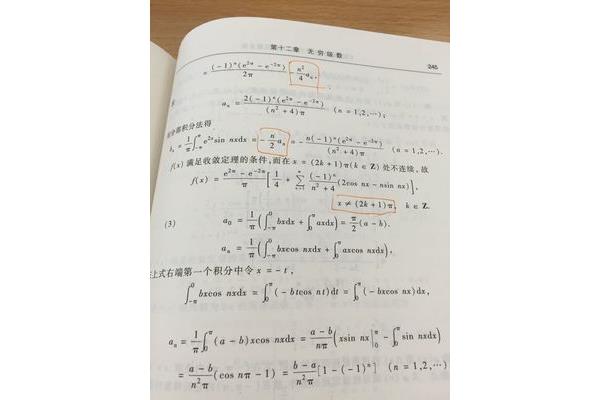 第十二章 无穷级数 245
= \frac{(-1)^n(e^{2π} - e^{-2π})}{2π} - \frac{n^2}{4}a_n,
a_n = \frac{2(-1)^n(e^{2π} - e^{-2π})}{(n^2+4)π} (n = 1,2,…);
部积分法得
b_n = \frac{1}{π}\int_{-π}^{π} e^{2x}\sin nxdx = -\frac{n}{2}a_n = -\frac{n(-1)^n(e^{2π} - e^{-2π})}{(n^2+4)π} (n = 1,2,…).
f(x) 满足收敛定理的条件,而在 x = (2k+1)π(k ∈ Z) 处不连续, 故
f(x) = \frac{e^{2π} - e^{-2π}}{π}[\frac{1}{4} + \sum_{n=1}^{∞} \frac{(-1)^n}{n^2+4}(2\cos nx - n\sin nx)],
x ≠ (2k+1)π, k ∈ Z.
(3) a_0 = \frac{1}{π}(\int_{-π}^{0} bxdx + \int_{0}^{π} axdx) = \frac{π}{2}(a - b).
a_n = \frac{1}{π}(\int_{-π}^{0} bx\cos nxdx + \int_{0}^{π} ax\cos nxdx),
上式右端第一个积分中令 x = -t,
\int_{-π}^{0} bx\cos nxdx = \int_{0}^{π}(-bt\cos nt)dt = \int_{0}^{π}(-bx\cos nx)dx,
a_n = \frac{1}{π}\int_{0}^{π}(a - b)x\cos nxdx = \frac{a - b}{nπ}(x\sin nx|_{0}^{π} - \int_{0}^{π}\sin nxdx)
= \frac{a - b}{n^2π}(\cos nπ - 1) = \frac{b - a}{n^2π}[1 - (-1)^n] (n = 1,2,…)